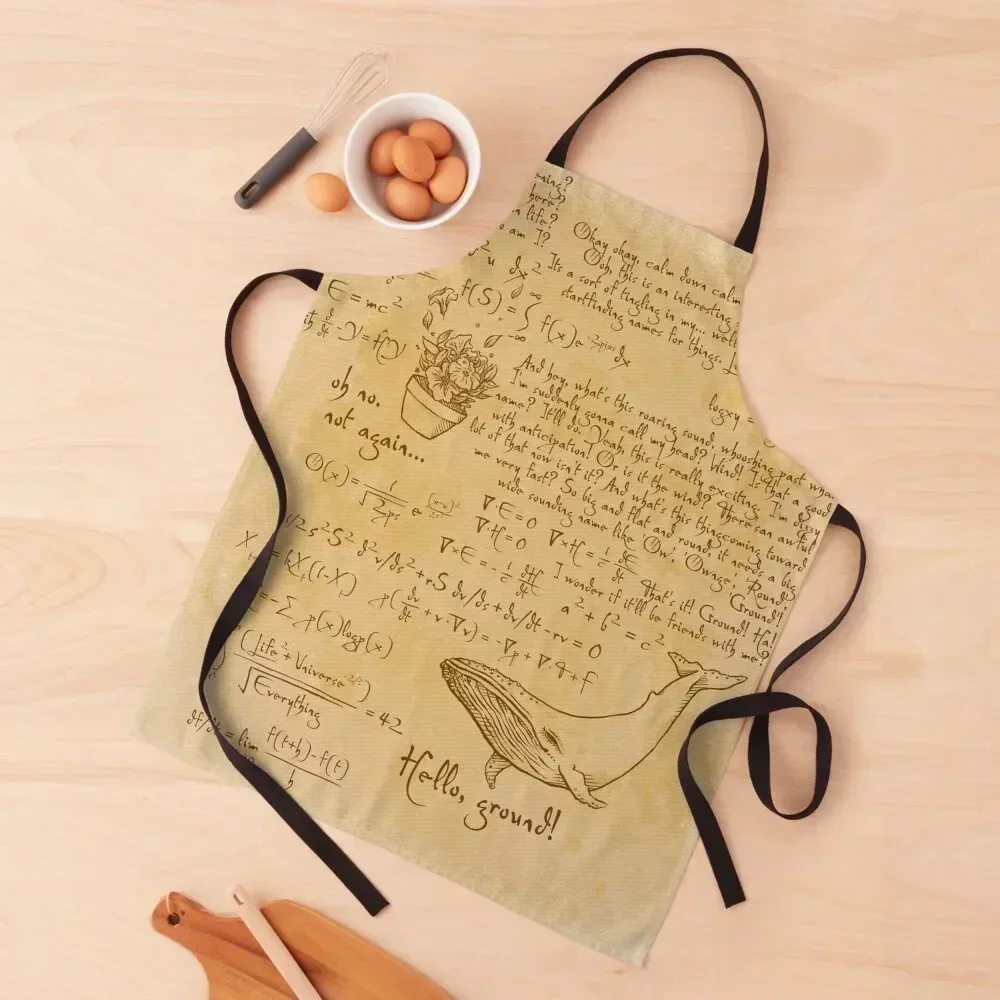 here?
life?
am I?
Okay okay, calm down calm
Ooh, this is an interesting
Its a sort of tingling in my... well
startfinding names for things.
E = mc²
f(S) = ∫
f(x)e dx
oh no.
not again...
logxy =
And hey, what's this roaring sound, whooshing past wha
I'm suddenly gonna call my head? Wind! Is that a good
name? It'll do. Yeah, this is really exciting. I'm dizzy
with anticipation! Or is it the wind? There san awful
lot of that now isn't it? And what's this thingcoming toward
me very fast? So big and flat and round, it needs a big
wide sounding name like 'Ow', 'Ownge', 'Round',
'Ground'!
That's it! Ground! Ha!
I wonder if it'll be friends with me?
∇·E=0
∇·H=0
∇×H = 1/c dE/dt
∇×E = -1/c dH/dt
1/2s²S² d²v/ds² + rS dv/ds + dv/dt - rv = 0
a² + b² = c²
p(dv/dt + v·∇v) = -∇p + ∇·T + f
= -Σ p(x)logp(x)
(Life² + Universe
√Everything
= 42
df/dt = lim f(t+h)-f(t)
h
Hello, ground!